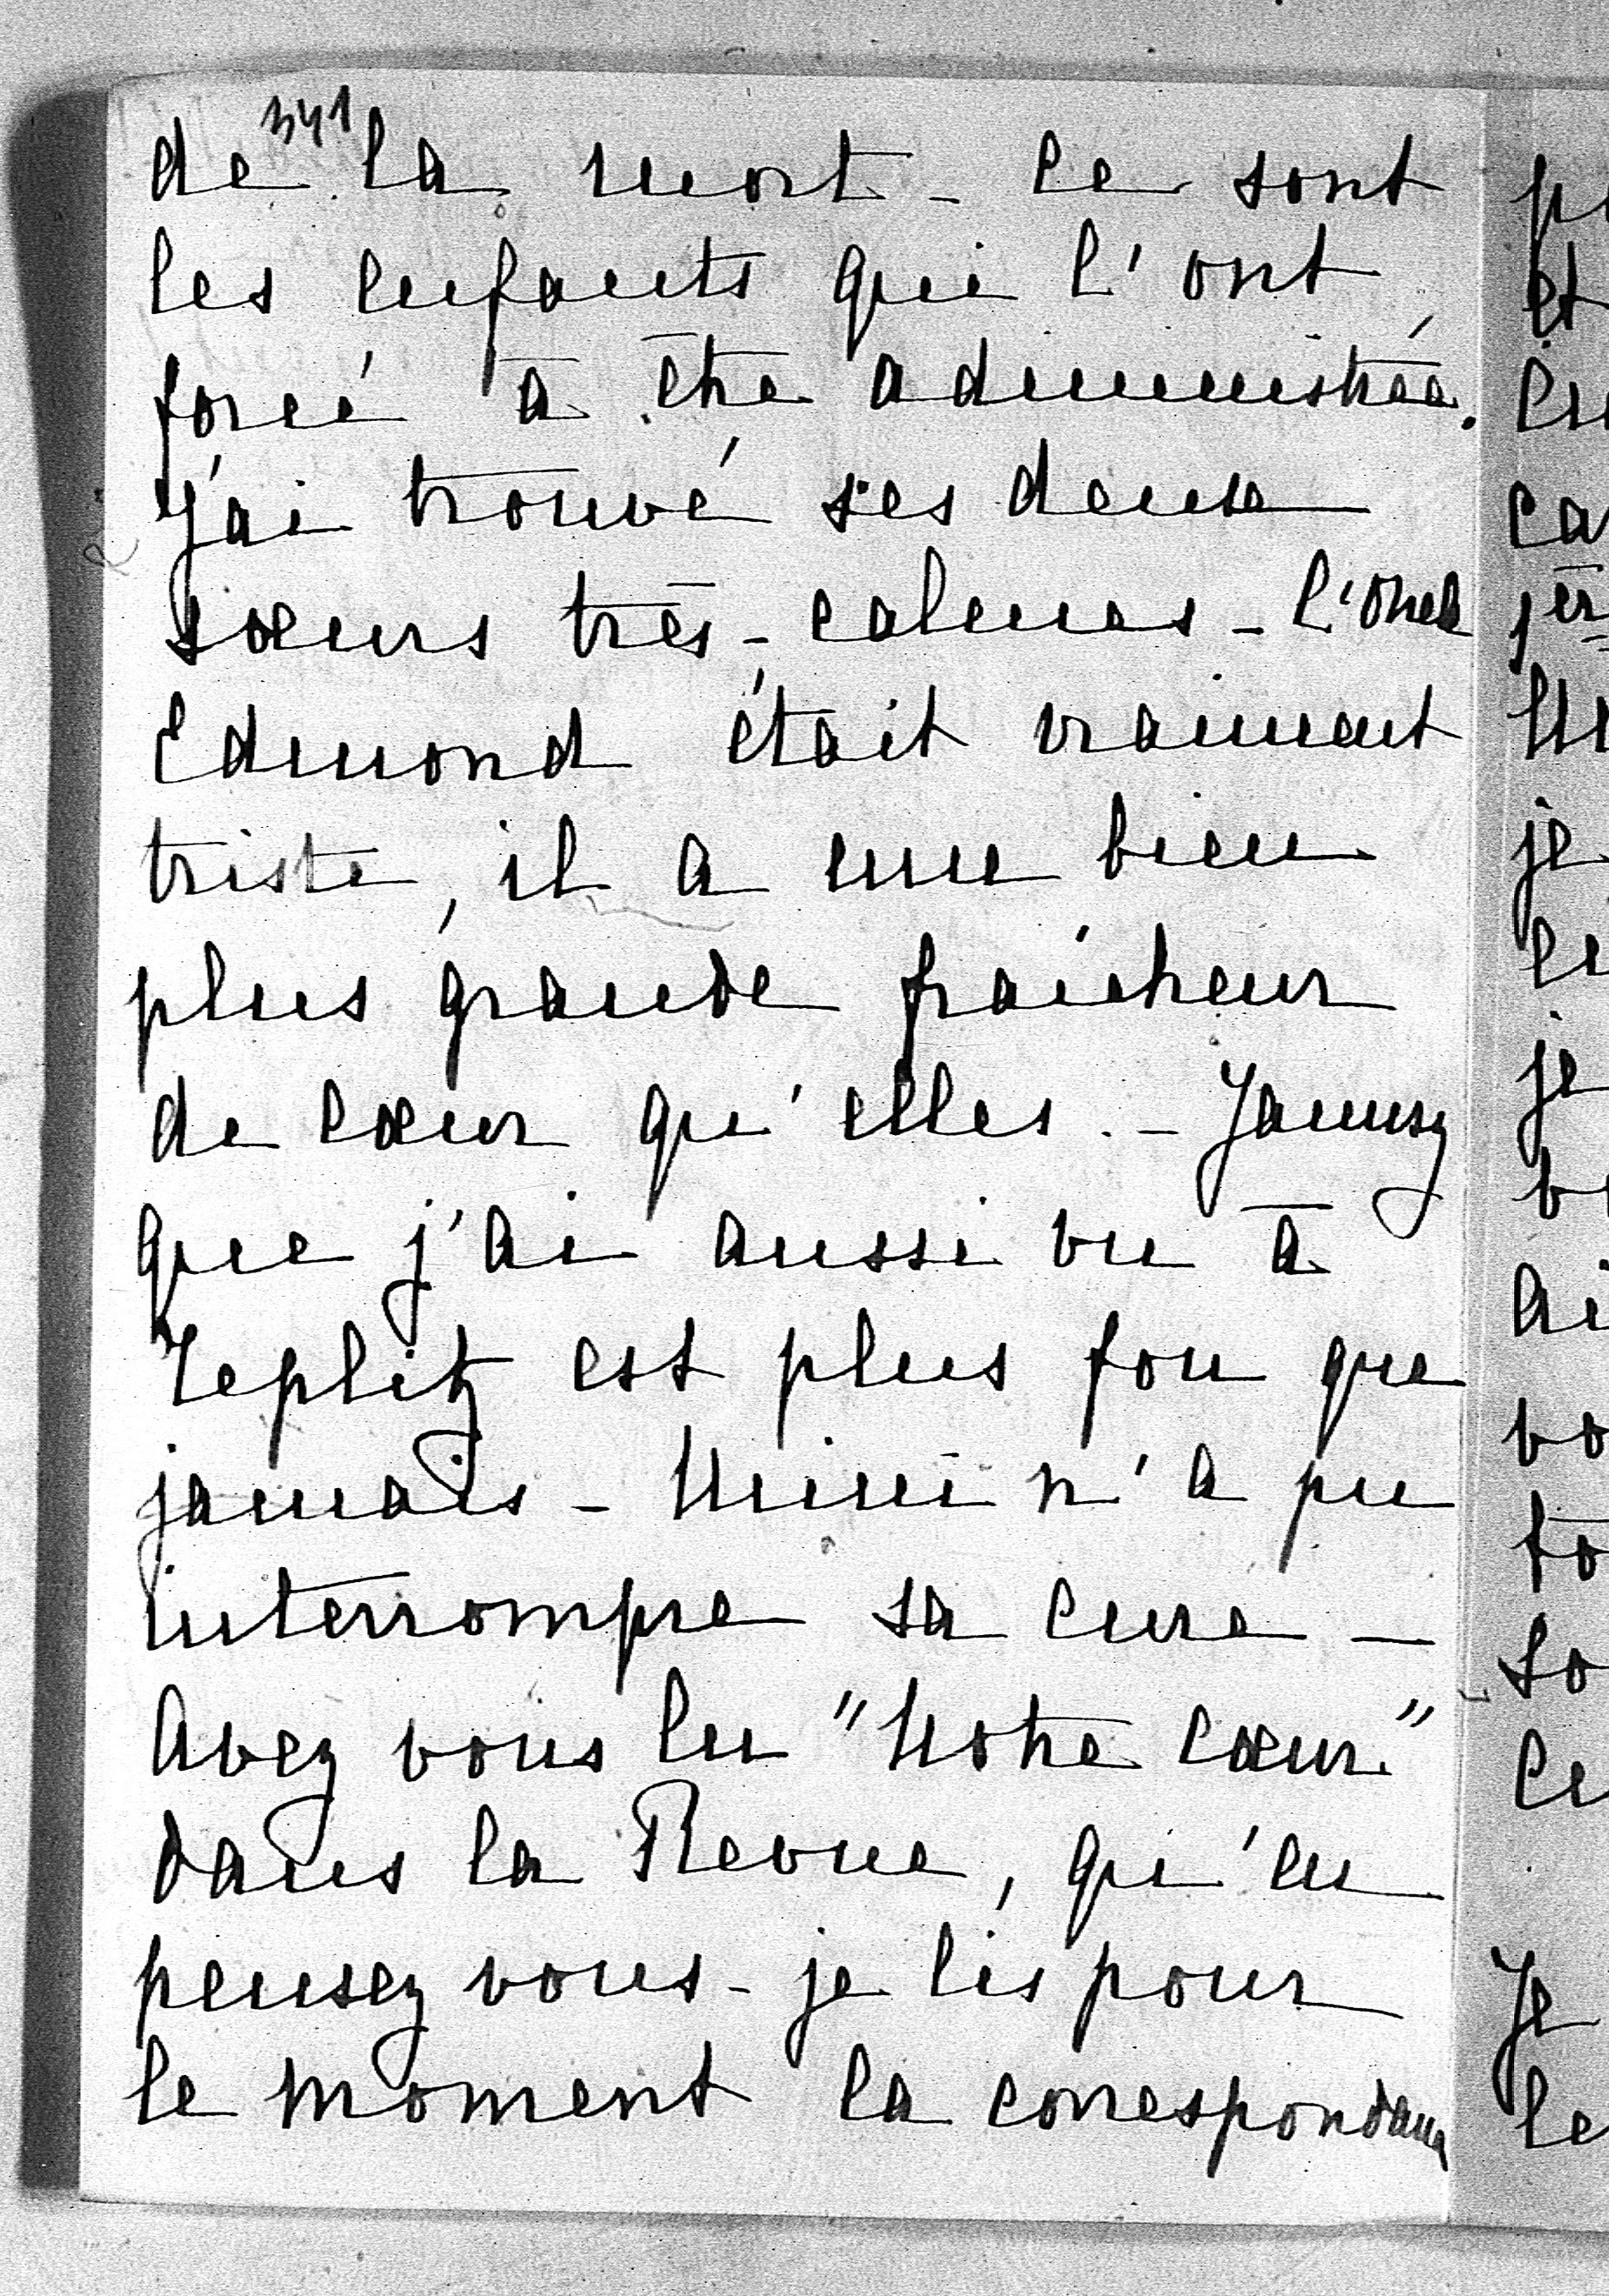 341
de la mort - ce sont
les enfants qui l'ont
forcé à être administrée.
J'ai trouvé ses deux
sœurs très-calmes - l'oncle
Edmond était vraiment
triste, il a une bien
plus grande fraîcheur
de cœur qu'elles. - Janusz
que j'ai aussi vu à
Teplitz est plus fou que
jamais - Mimi n'a pu
interrompre sa cure -
Avez vous lu "Notre cœur"
dans la Revue, qu'en
pensez vous - je lis pour
le moment la correspondance